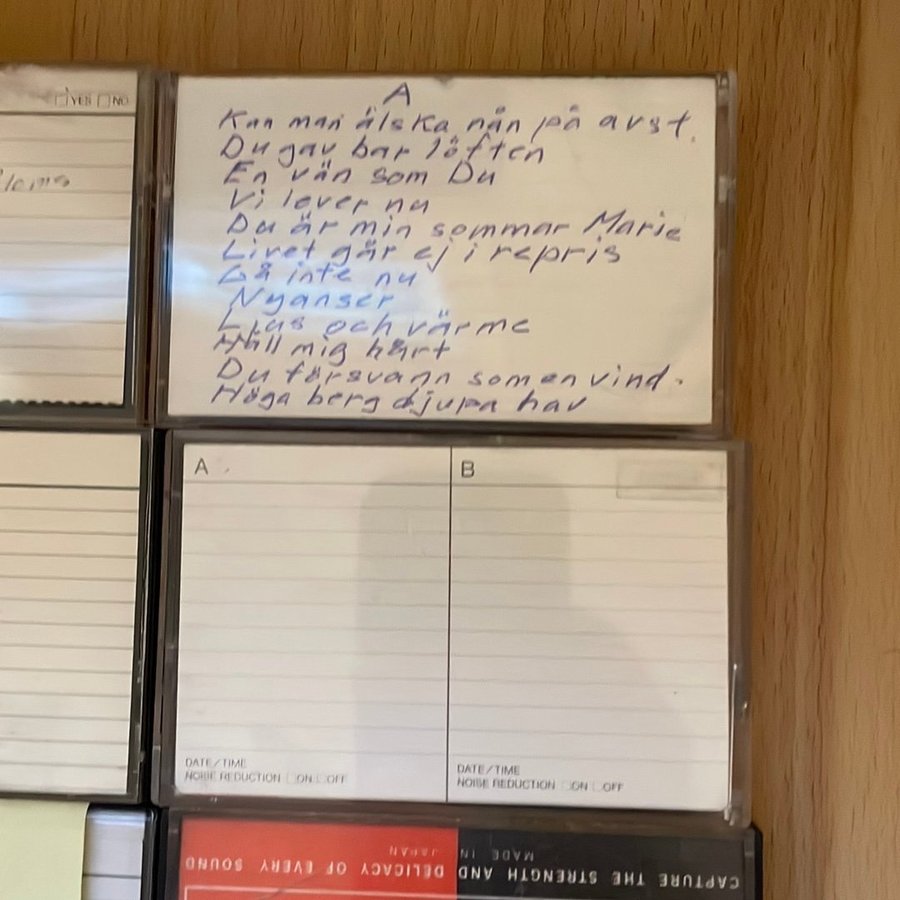 YES NO
A
Kan man älska nån på avst.
Du gav bar löften
En vän som Du
Vi lever nu
Du är min sommar Marie
Livet går ej i repris
Gå inte nu
Nyanser
Ljus och värme
Håll mig hårt
Du försvann som en vind.
Höga berg djupa hav
A
B
DATE/TIME
NOISE REDUCTION ON OFF
DATE/TIME
NOISE REDUCTION ON OFF
CAPTURE THE STRENGTH AND DELICACY OF EVERY SOUND
MADE IN JAPAN